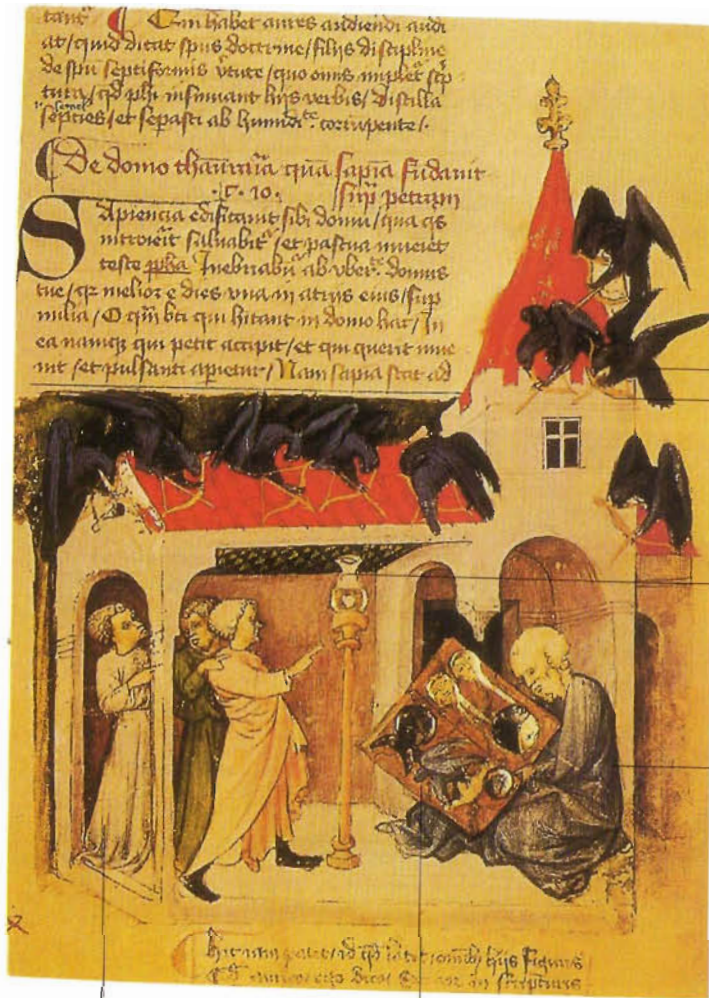 Qui habet aures audiendi audi
at / quid dicat spus doctrine / filijs discipline
de spu septiformis vtute / quo omis implet scp
tura / qd phi insinuant hijs verbis / distilla
septies / et sepasti ab humidite corrupente /.
De domo qua sapia fudauit
.C. 10. sup petram
Sapiencia edificauit sibi domu / qua qs
introierit saluabit / et pascua inueiet
teste ppha Inebriabu ab vberte domus
tue / qr melior e dies vna in atrijs eius / sup
milia / O qm bti qui hitant in domo hac / In
ea namque qui petit accipit / et qui querit inue
nit / et pulsanti apietur / Nam sapia stat ad
figuris
in scripturis